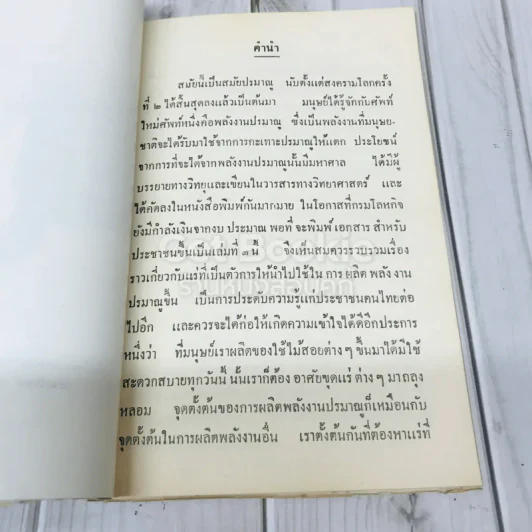 คำนำ
สมัยนี้เป็นสมัยปรมาณู นับตั้งแต่สงครามโลกครั้ง
ที่ ๒ ได้สิ้นสุดลงแล้วเป็นต้นมา มนุษย์ได้รู้จักกับศัพท์
ใหม่ศัพท์หนึ่งคือพลังงานปรมาณู ซึ่งเป็นพลังงานที่มนุษย-
ชาติจะได้รับมาใช้จากการกะเทาะปรมาณูให้แตก ประโยชน์
จากการที่จะได้จากพลังงานปรมาณูนั้นมีมหาศาล ได้มีผู้
บรรยายทางวิทยุและเขียนในวารสารทางวิทยาศาสตร์ และ
ได้คัดลงในหนังสือพิมพ์กันมากมาย ในโอกาสที่กรมโลหกิจ
ยังมีกำลังเงินจากงบ ประมาณ พอที่ จะพิมพ์ เอกสาร สำหรับ
ประชาชนขึ้นเป็นเล่มที่ ๓ นี้ จึงเห็นสมควรรวบรวมเรื่อง
ราวเกี่ยวกับแร่ที่เป็นตัวการให้นำไปใช้ใน การ ผลิต พลัง งาน
ปรมาณูขึ้น เป็นการประดับความรู้แก่ประชาชนคนไทยต่อ
ไปอีก และควรจะได้ก่อให้เกิดความเข้าใจได้ดีอีกประการ
หนึ่งว่า ที่มนุษย์เราผลิตของใช้ไม้สอยต่าง ๆ ขึ้นมาได้มีใช้
สะดวกสบายทุกวันนี้ นั้นเราก็ต้อง อาศัยขุดแร่ ต่าง ๆ มาถลุง
หลอม จุดตั้งต้นของการผลิตพลังงานปรมาณูก็เหมือนกับ
จุดตั้งต้นในการผลิตพลังงานอื่น เราตั้งต้นกันที่ต้องหาแร่ที่